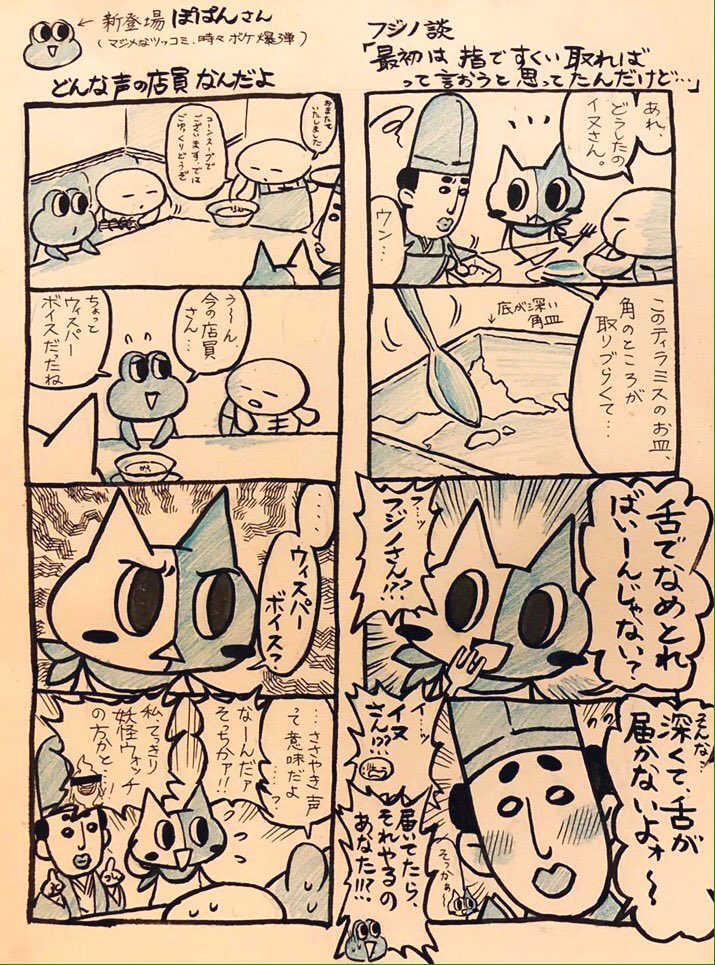 フジノ談
「最初は 指ですくい取れば
って言おうと思ってたんだけど…」
あれ、
どうしたの
イヌさん。
ウン…
このティラミスのお皿、
角のところが
取りづらくて…
底が深い
角皿
舌でなめとれ
ばいーんじゃない?
フ…ッ
フジノさん!?
そんな…
深くて、舌が
届かないよォ〜
イ…ッ
イヌ
さん!??
そっかぁ…
届いてたら、
それやるの
あなた!!??
←新登場 ぽぱんさん
(マジメなツッコミ、時々ボケ爆弾)
どんな声の店員なんだよ
おまたせ
いたしました
コーンスープで
ございます。では
ごゆっくりどうぞ
う〜ん
今の店員
さん…
ちょっと
ウィスパー
ボイスだったね
…
ウィスパー
ボイス?
…ささやき声
って意味だよ
……?
なーんだァ
そっちかァ!!
私てっきり
妖怪ウォッチ
の方かと…!